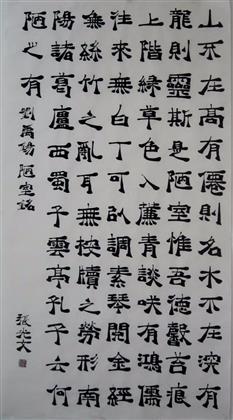 山不在高有僊則名水不在深有
龍則靈斯是陋室惟吾德馨苔痕
上階綠草色入簾青談咲有鴻儒
往來無白丁可㕥調素琴閱金經
無絲竹之亂耳無桉牘之勞形南
陽諸葛廬西蜀子雲亭孔子云何
陋之有 劉禹錫 陋室銘